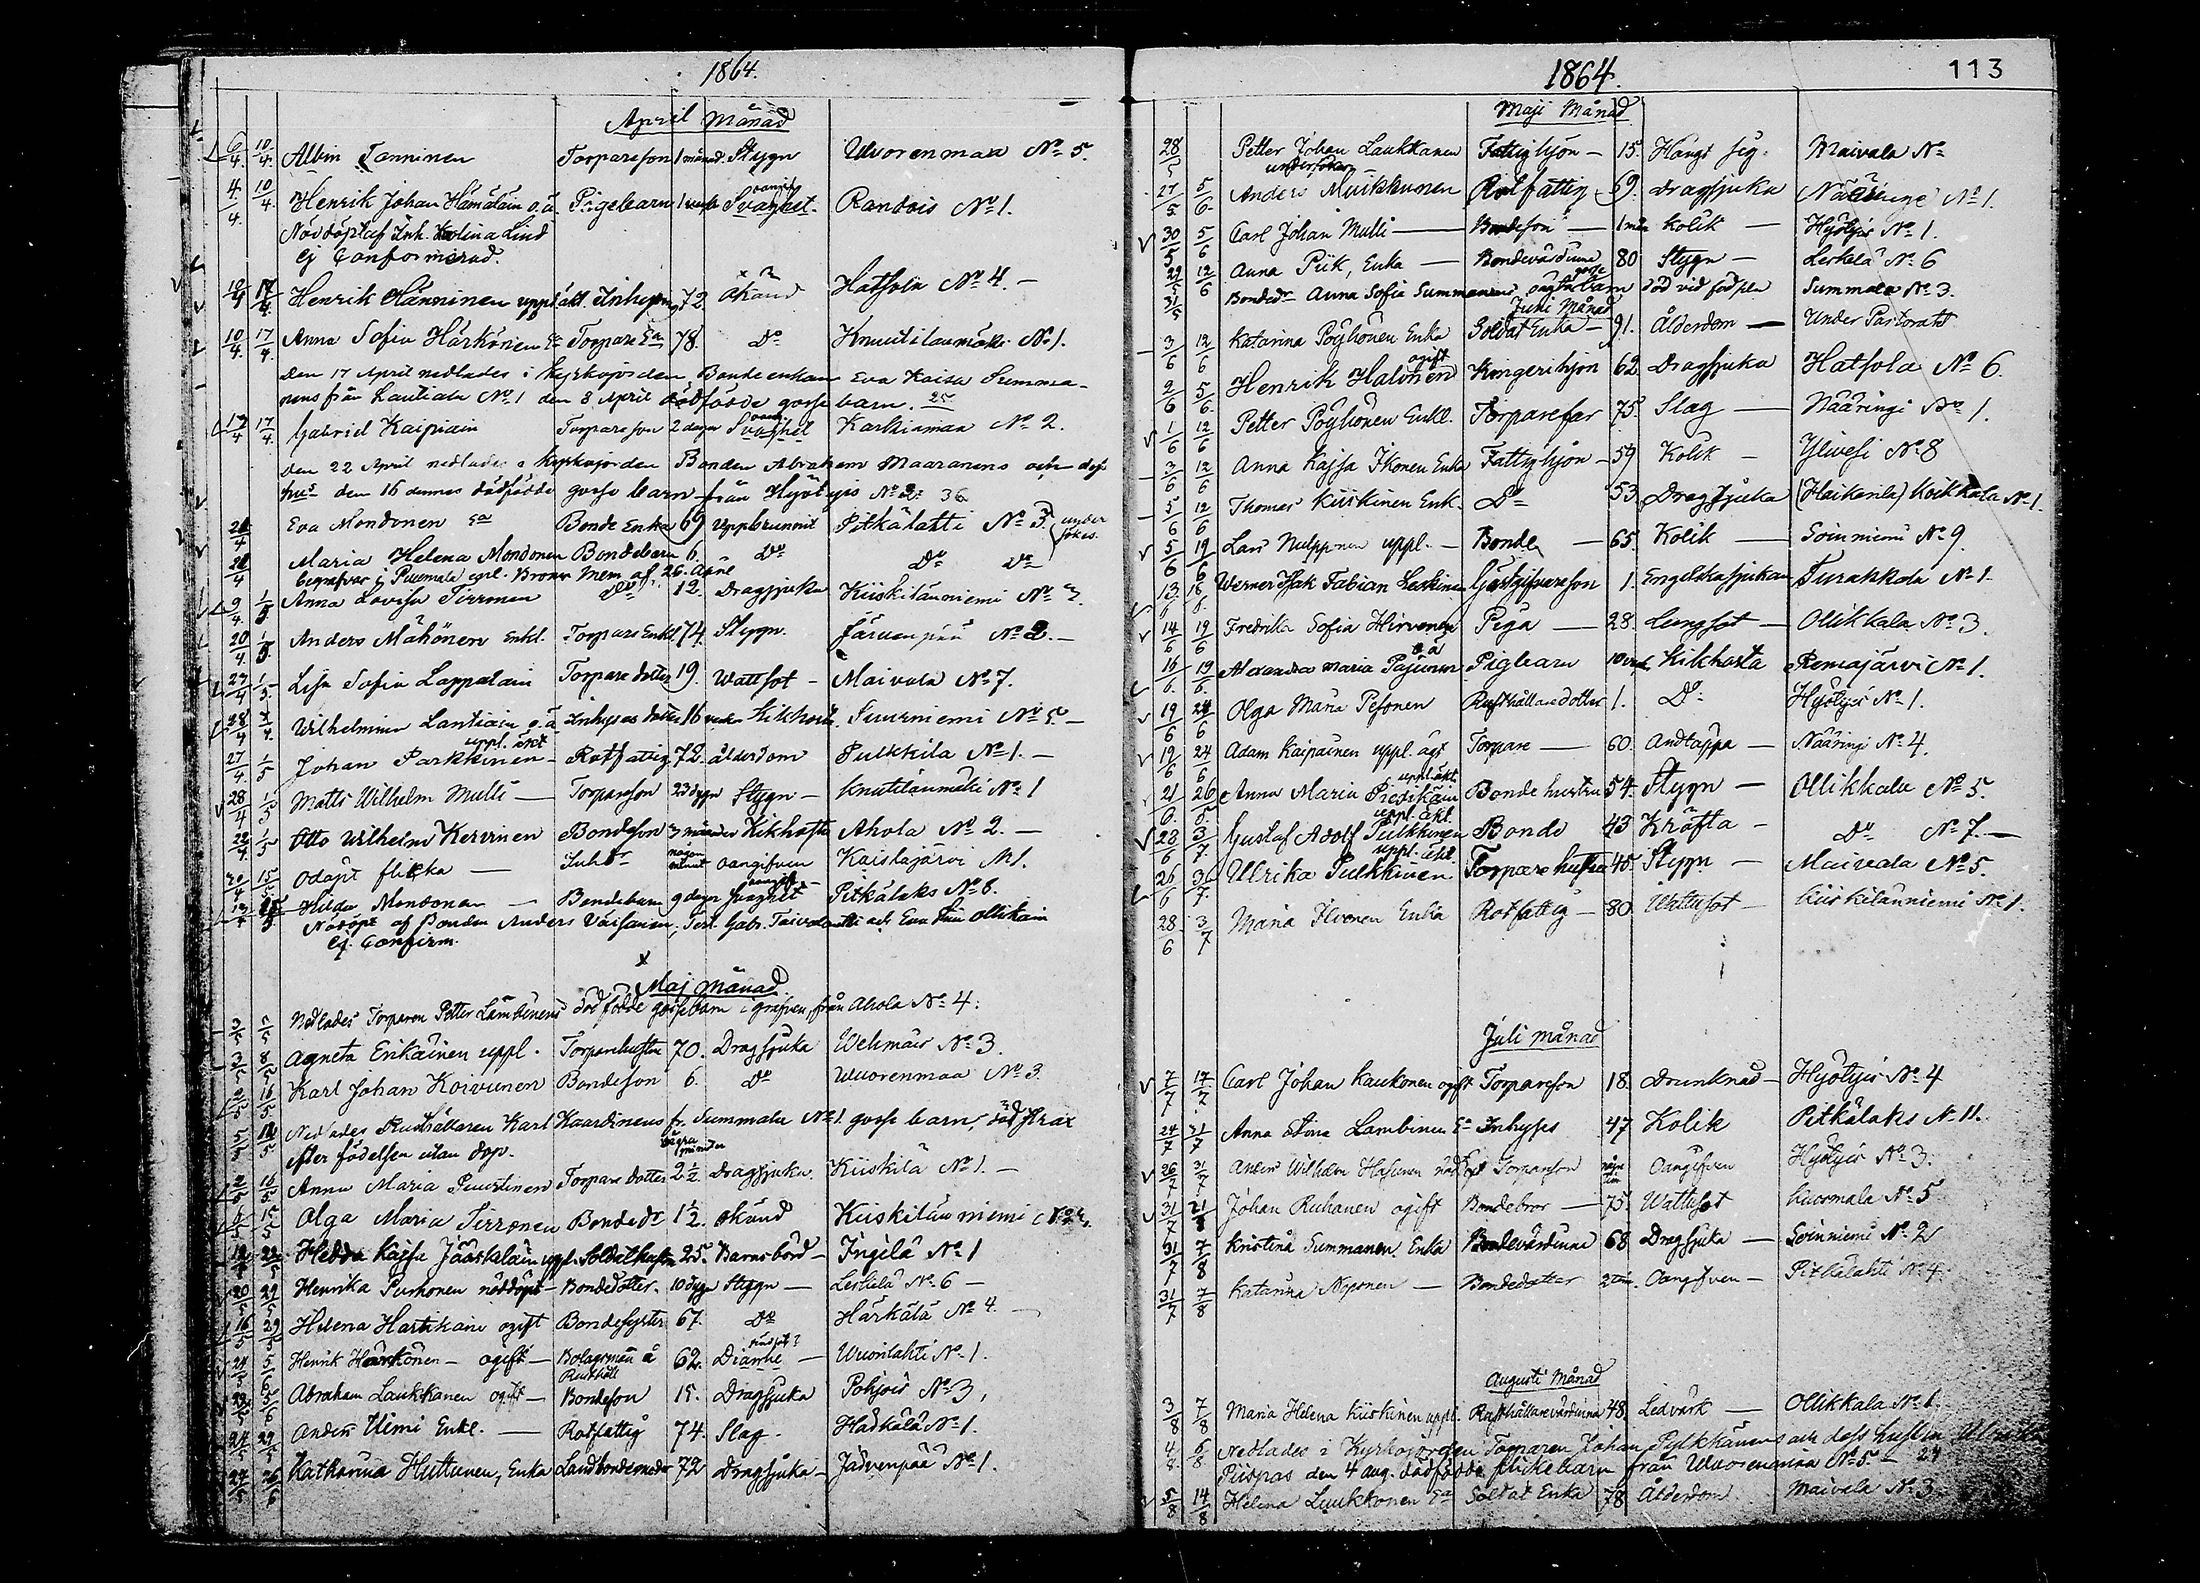 1864.
April Månad
6/4. 10/4. Albin Tanninen Torpareson 1 månad. Stygn Wuorenmaa No 5.
4/4. 10/4. Henrik Johan Hämäläin o.ä. Pigebarn 1 Svaghet. Randois No 1.
Nöddöpt af Inh. Kolina Lind
ej Confirmerad.
10/4 17/4. Henrik Hänninen uppl. äkt. Inhyses 72. Okänd Hatsola No 4. –
10/4. 17/4. Anna Sofia Härkönen Ea Torpare Ea 78. Do Knuutilanmäki No 1.
Den 17 April nedlades i kyrkojorden Bonde enkan Eva Kaisa Summa-
nens från Lautiala No 1 den 8 April dödfödde gosse barn. 25
13/4 17/4 Gabriel Kaipiain Torpareson 2 dagar Svaghet Karkiamaa No 2.
Den 22 April nedlades i kyrkojorden Bonden Abraham Maaranens och dess
hus den 16 dennes dödfödde gosse barn från Hyötyis No 2 36
21/4 Eva Mondonen Ea Bonde Enka 69 Uppbrunnit Pitkälatti No 3. under sökes.
21/4 Maria Helena Mondonen Bondebarn 6. Do Do Do
begrafvas i Puumala enl. Mem. af 26. April
9/4. 1/5. Anna Lovisa Tirronen Do 12. Dragsjuka Kiiskilänniemi No 2.
20/4. 1/5. Anders Mähönen Enkl. Torpare Enkl 74. Stygn. Järvenpää No 2. –
27/4 1/5. Lisa Sofia Lappalain Torpare dotter 19. Wattsot – Maivala No 7.
28/4 Wilhelmina Lantiain o.ä. Inhyses dotter 16 veckor Kikhosta. Suurniemi No 5. –
uppl. äkt
27/4 1/5 Johan Parkkinen – Rotfattig 72. ålderdom Pulkkila No 1. –
28/4 1/5 Matts Wilhelm Multi — Torpareson 23 dygn Stygn – Knutilanmäki No 1
22/4. 1/5 Otto Wilhelm Kervinen Bondeson 3 månader Kikhosta Ahola No 2. –
30/4 15/5 Odöpt flicka — någon minut oangifven Kaislajärvi No 1.
13/4 Hilda Mondonen — Bondebarn 9 dagar Svaghet Pitkälaks No 6.
Nöddöpt af Bonden Anders Väisänen, Test. Gabr. Taivalmäki och Eva Ollikain
ej Confirm.
Maj Månad.
3/5 5/5 Nedlades Torparen Petter Lambinens död födde gossebarn i grafven, från Ahola No 4.
3/5 8/5 Agneta Erikäinen uppl. Torparehustru 70. Dragsjuka Wehmais No 3.
2/5 16/5 Karl Johan Koivunen Bondeson 6. Do Wuorenmaa No 3.
5/5 12/5 Nedlades Rusthållaren Karl Kaardinens fr. Summala No 1. gosse barn, död strax
efter födelsen utan dop.
2/5 16/5 Anna Maria Puustinen Torpare dotter 2 1/2 Dragsjuka. Kiiskilä No 1. –
6/5 15/5 Olga Maria Tirronen Bondedr 1 1/2. Okänd Kiiskilänniemi No 2.
22/5 Hedda Kajsa Jääskeläin uppl. Soldathustru 25. Barnsbörd – Ingilä No 1
20/5 29/5 Henrika Purhonen nöddöpt – Bondedotter. 10 dygn Stygn — Leskelä No 6 –
16/5 29/5 Helena Hartikain ogift Bondesyster 67. Do Härkälä No 4. –
24/5 5/6 Henrik Härkönen – ogift – Bolagsman å Rusthåll 62. Diarrhé — Wuorilahti No 1.
29/5 5/6 Abraham Laukkanen ogift – Bondeson 15. Dragsjuka Pohjois No 3,
24/5 29/5 Anders Ulmi Enkl. — Rotfattig 74. Slag. Härkälä No 1.
27/5 26/6 Katharina Huttunen, Enka Landbondemoder 72 Dragsjuka – Järvenpää No 1.
1864. 113
Maji Månad
28/5 Petter Johan Laukkanen Fattighjon – 15. Hängt sig. Maivala No
27/5 5/6 Anders Muikkunen Rotfattig 69. Dragsjuka Nääringe No 1.
30/5 5/6 Carl Johan Multi — Bondeson — 1 mån Kolik — Hyötyis No 1.
29/5 12/6 Anna Piik, Enka — Bondevärdinna 80 Stygn – Leskelä No 6
31/5 Bondedr Anna Sofia Summanens oägta gosse barn död vid födseln Summala No 3.
Juni Månad
3/6 12/6 Katarina Pöyhönen Enka Soldat Enka – 91. Ålderdom — Under Pastoratet
2/6 5/6. Henrik Halonen ogift Kringerihjon 62. Dragsjuka Hatsola No 6.
1/6 12/6 Petter Pöyhönen Enkl. Torparefar 75. Slag — Nääringi No 1.
3/6 12/6 Anna Kajsa Ikonen Enka Fattighjon – 59 Kolik – Ylivesi No 8
5/6 12/6 Thomas Kiiskinen Enk. Do 53. Dragsjuka (Haikarila) Koikkala No 1.
5/6 19/6 Lars Nulpponen uppl. – Bonde — 65. Kolik — Soinniemi No 9.
13/6 Werner Isak Fabian Leskinen Gästgifvareson 1. Engelska sjukan Turakkala No 1.
14/6 19/6 Fredrika Sofia Hirvonen Piga — 28. Lungsot — Ollikkala No 3.
16/6. 19/6. Alexandra Maria Pajunen o.ä. Pigbarn Kikhosta Remojärvi No 1.
19/6 24/6 Olga Maria Pesonen Rusthållaredotter 1. Do Hyötyis No 1.
19/6 24/6 Adam Kaipainen uppl. ägt Torpare — 60. Andtäppa — Nääringi No 4.
21/6 26/6. Anna Maria Piedikäin uppl. äkt Bonde hustru 54. Stygn — Ollikkala No 5.
28/6 3/7. Gustaf Adolf Pulkkinen uppl. äkt. Bonde 43 Kräfta – Do No 7. —
26/6 3/7. Ulrika Pulkkinen uppl. äkt. Torpare hustru 45. Stygn — Maivala No 5.
28/6 3/7 Maria Ilvonen Enka Rotfattig – 80. Wattusot – Kiiskilänniemi No 1.
Juli Månad
7/7 17/7 Carl Johan Kaukonen ogift Torpareson 18. Drunknad – Hyötyis No 4
24/7 31/7 Anna Stina Lambinen Ea Inhyses 47 Kolik Pitkälaks No 11.
26/7 31/7 Anders Wilhelm Hasunen nöddöpt Torpareson några tim Oangifven Hyötyis No 3.
31/7 21/8 Johan Ruhanen ogift Bondebror — 75. Wattusot Kuosmala No 5
31/7 7/8 Kristina Summanen Enka Bondevärdinna 68 Dragsjuka — Soinniemi No 2
31/7 7/8 Katarina Nyponen — Bondedotter 2 tim. Oangifven – Pitkälahti No 4
Augusti Månad
3/8 7/8 Maria Helena Kiiskinen uppl. Rusthållarevärdinna 48. Ledvärk — Ollikkala No 1.
4/8. 6/8. Nedlades i Kyrkojorden Torparen Johan Pylkkänens och dess hustru
Piispas den 4 aug. dödfödde flickebarn från Wuorenmaa No 5. – 24
5/8 14/8 Helena Luukkonen Ea Soldat Enka 78 Ålderdom Maivala No 3